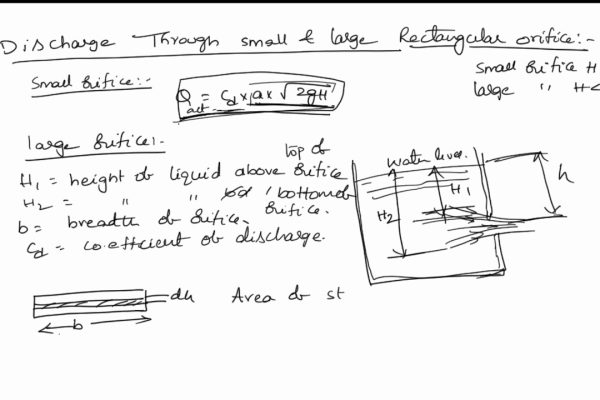 Discharge Through small & large Rectangular orifice:-
small Orifice H
large " H<
Small Orifice:-
Qact = Cd × a × √2gH
large Orifice:-
H1 = height of liquid above top of Orifice
H2 = " " " bottom of Orifice.
b = breadth of Orifice.
Cd = co.efficient of discharge.
water level.
H1
H2
h
dh
b
Area of st